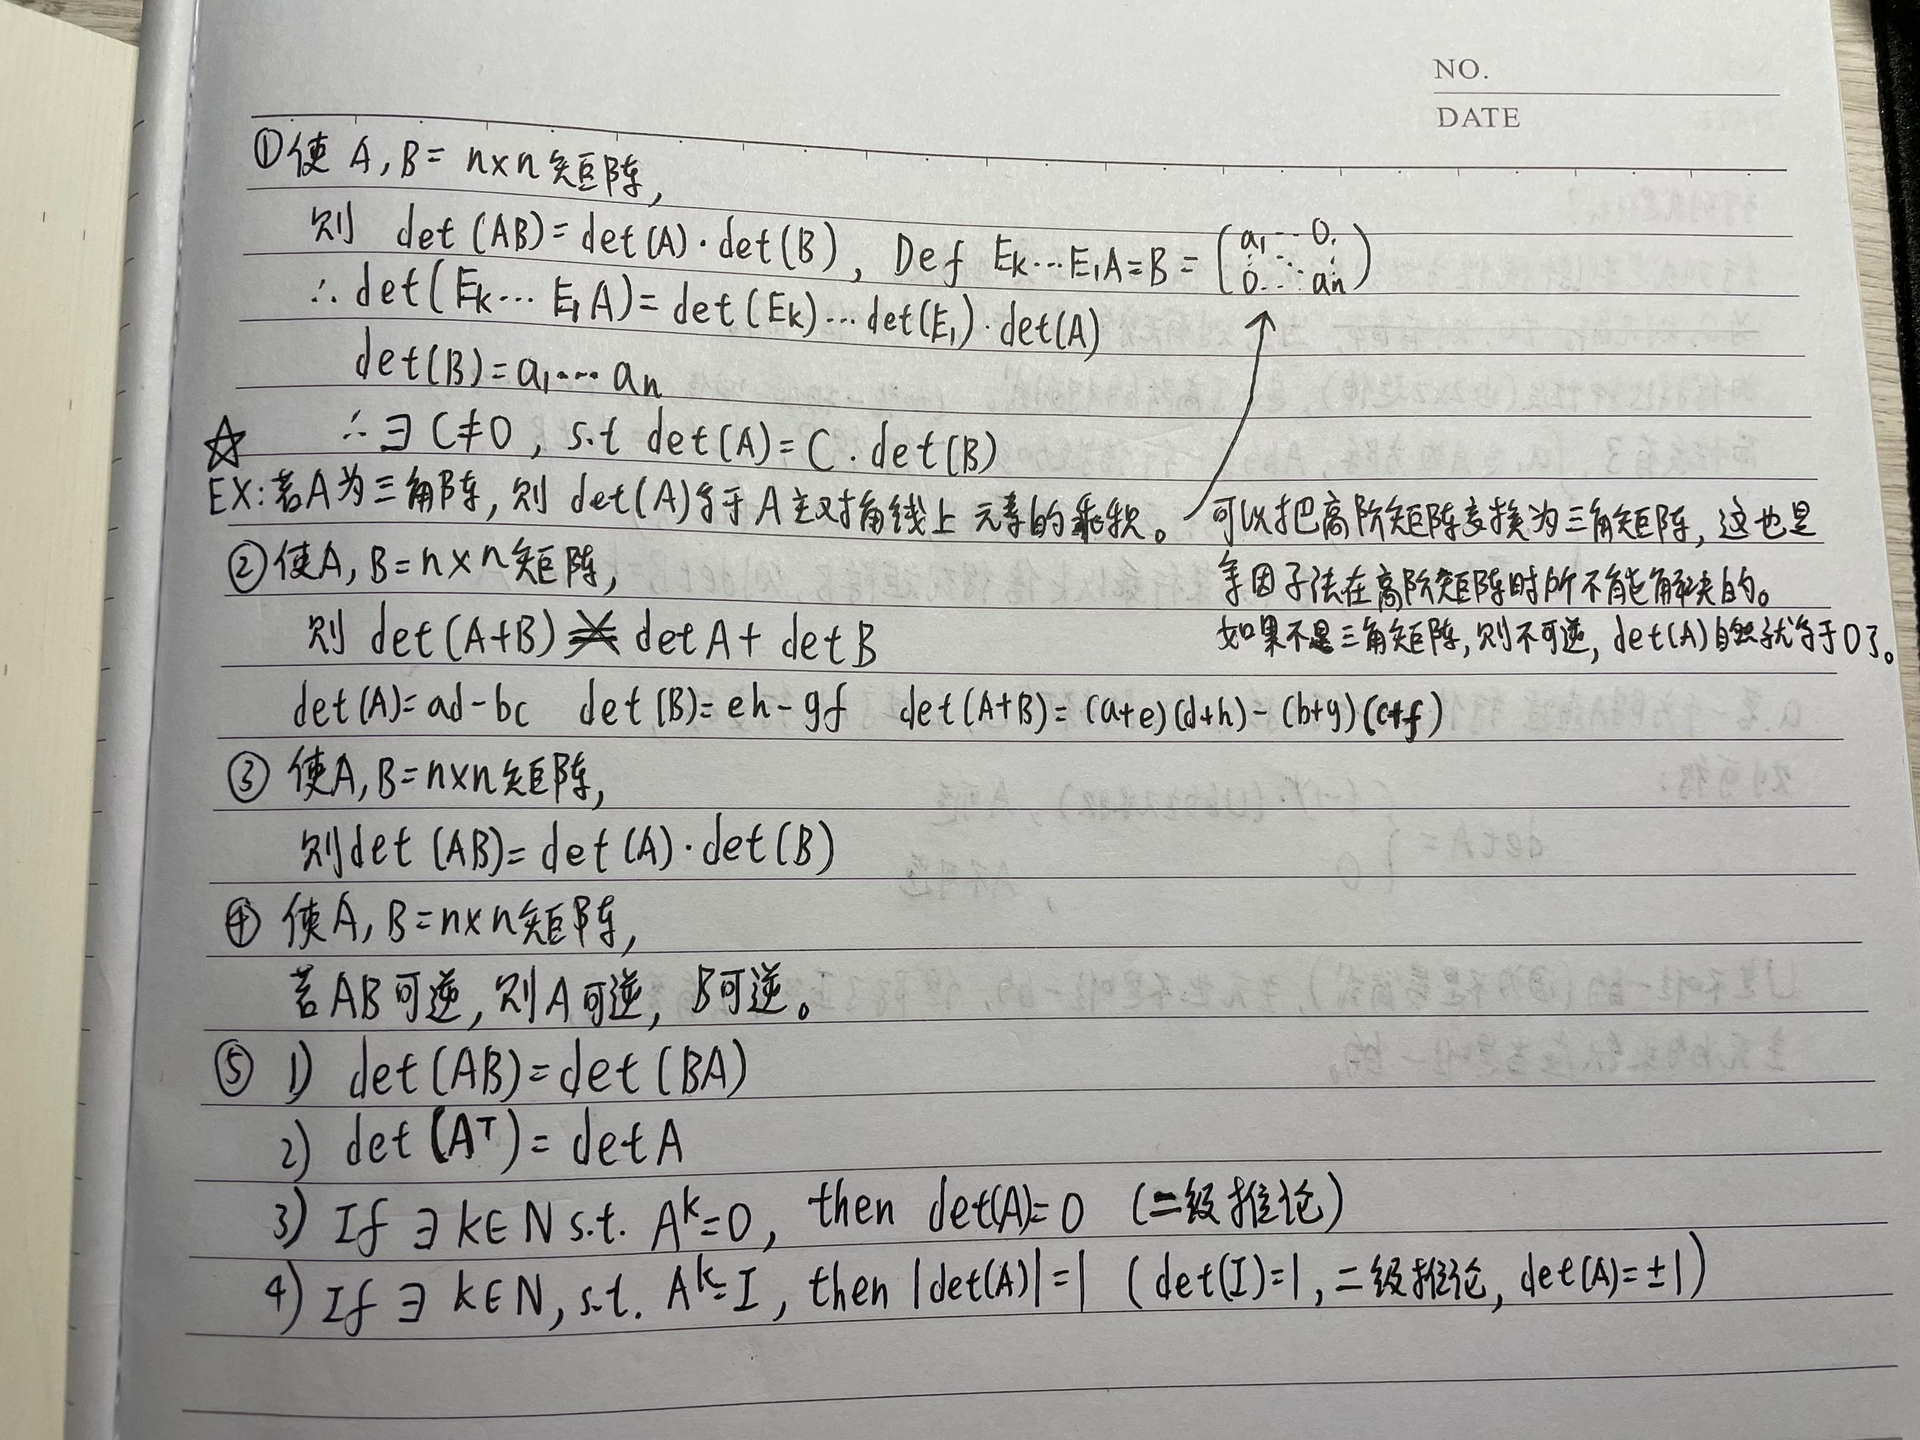 NO.
DATE
①使 A, B = n×n 矩阵,
则 det(AB)=det(A)·det(B), Def Ek…E₁A=B= (a₁ … 0 ⋮ ⋱ ⋮ 0 … an)
∴ det(Ek… E₁A)=det(Ek)…det(E₁)·det(A)
det(B)=a₁…an
☆ ∴ ∃ C≠0, s.t det(A)=C·det(B)
EX:若A为三角阵, 则 det(A)等于A主对角线上元素的乘积。
可以把高阶矩阵变换为三角矩阵, 这也是
余因子法在高阶矩阵时所不能解决的。
如果不是三角矩阵, 则不可逆, det(A)自然就等于0了。
②使A, B=n×n矩阵,
则 det(A+B) ≠ detA+ detB
det(A)=ad-bc det(B)=eh-gf det(A+B)=(a+e)(d+h)-(b+g)(c+f)
③ 使A, B=n×n矩阵,
则det(AB)=det(A)·det(B)
④ 使A, B=n×n矩阵,
若AB可逆, 则A可逆, B可逆。
⑤ 1) det(AB)=det(BA)
2) det(Aᵀ)= detA
3) If ∃ k∈N s.t. Aᵏ=0, then det(A)=0 (二级推论)
4) If ∃ k∈N, s.t. Aᵏ=I, then |det(A)|=1 (det(I)=1, 二级推论, det(A)=±1)